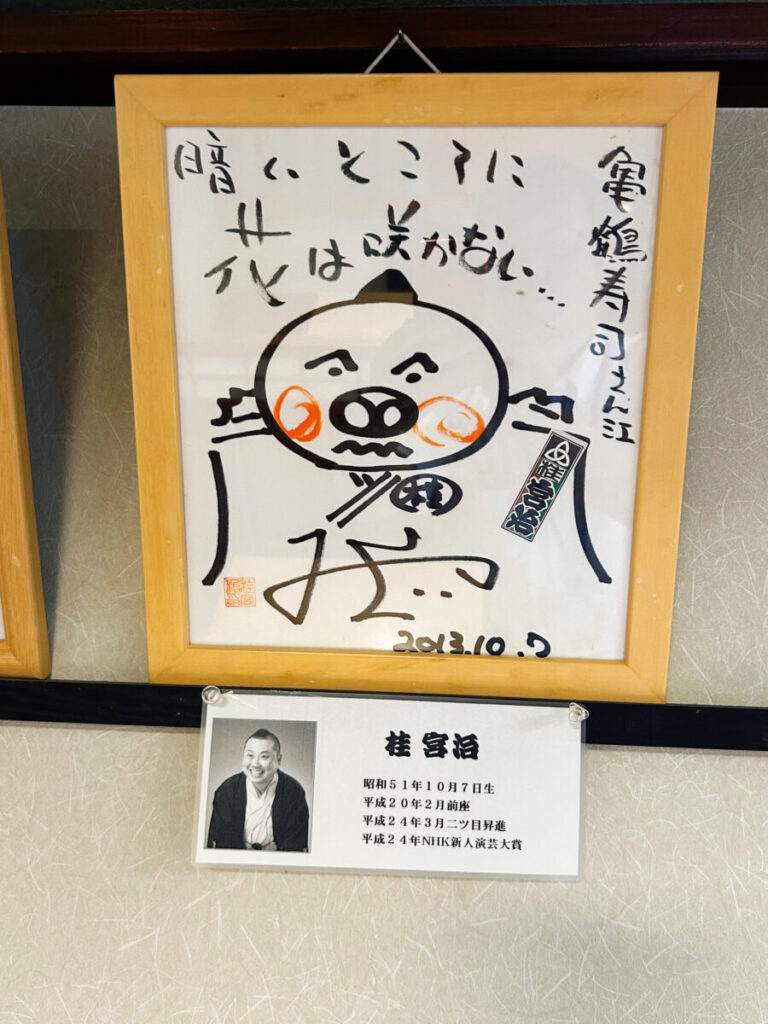 暗いところに
花は咲かない...
亀鶴寿司さん江
桂
桂宮治
2013.10.7
桂 宮治
昭和51年10月7日生
平成20年2月前座
平成24年3月二ツ目昇進
平成24年NHK新人演芸大賞